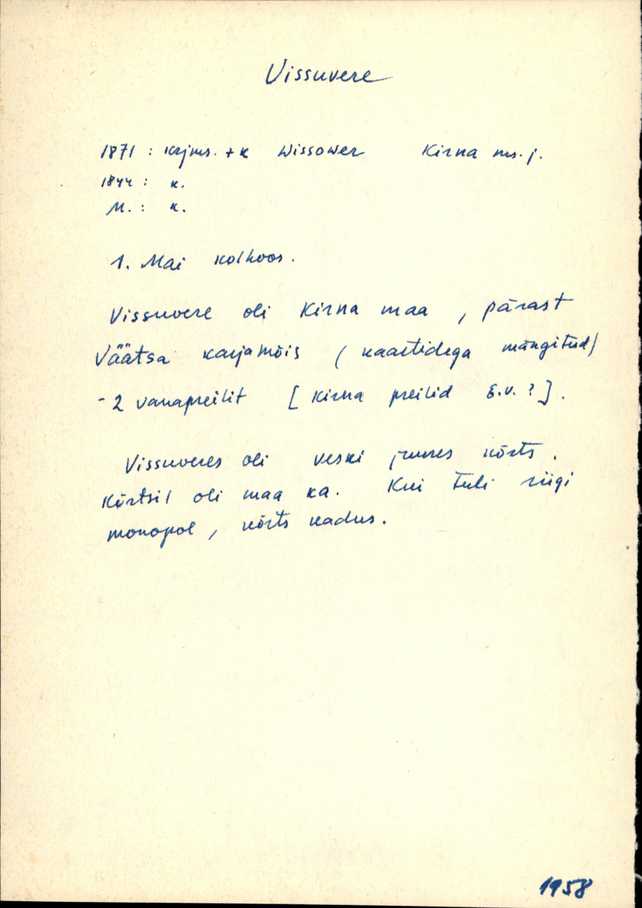 Vissuvere
1871 : krjms. + k Wissower Kirna ms. j.
1844 : k.
M. : k.
1. Mai kolhoos.
Vissuvere oli Kirna maa , pärast
Väätsa karjamõis ( kaartidega mängitud )
- 2 vanapreilit [ Kirna preilid E.v. ? ] .
Vissuveres oli veski juures kõrts .
Kõrtsil oli maa ka. Kui tuli riigi
monopol , kõrts kadus .
1958